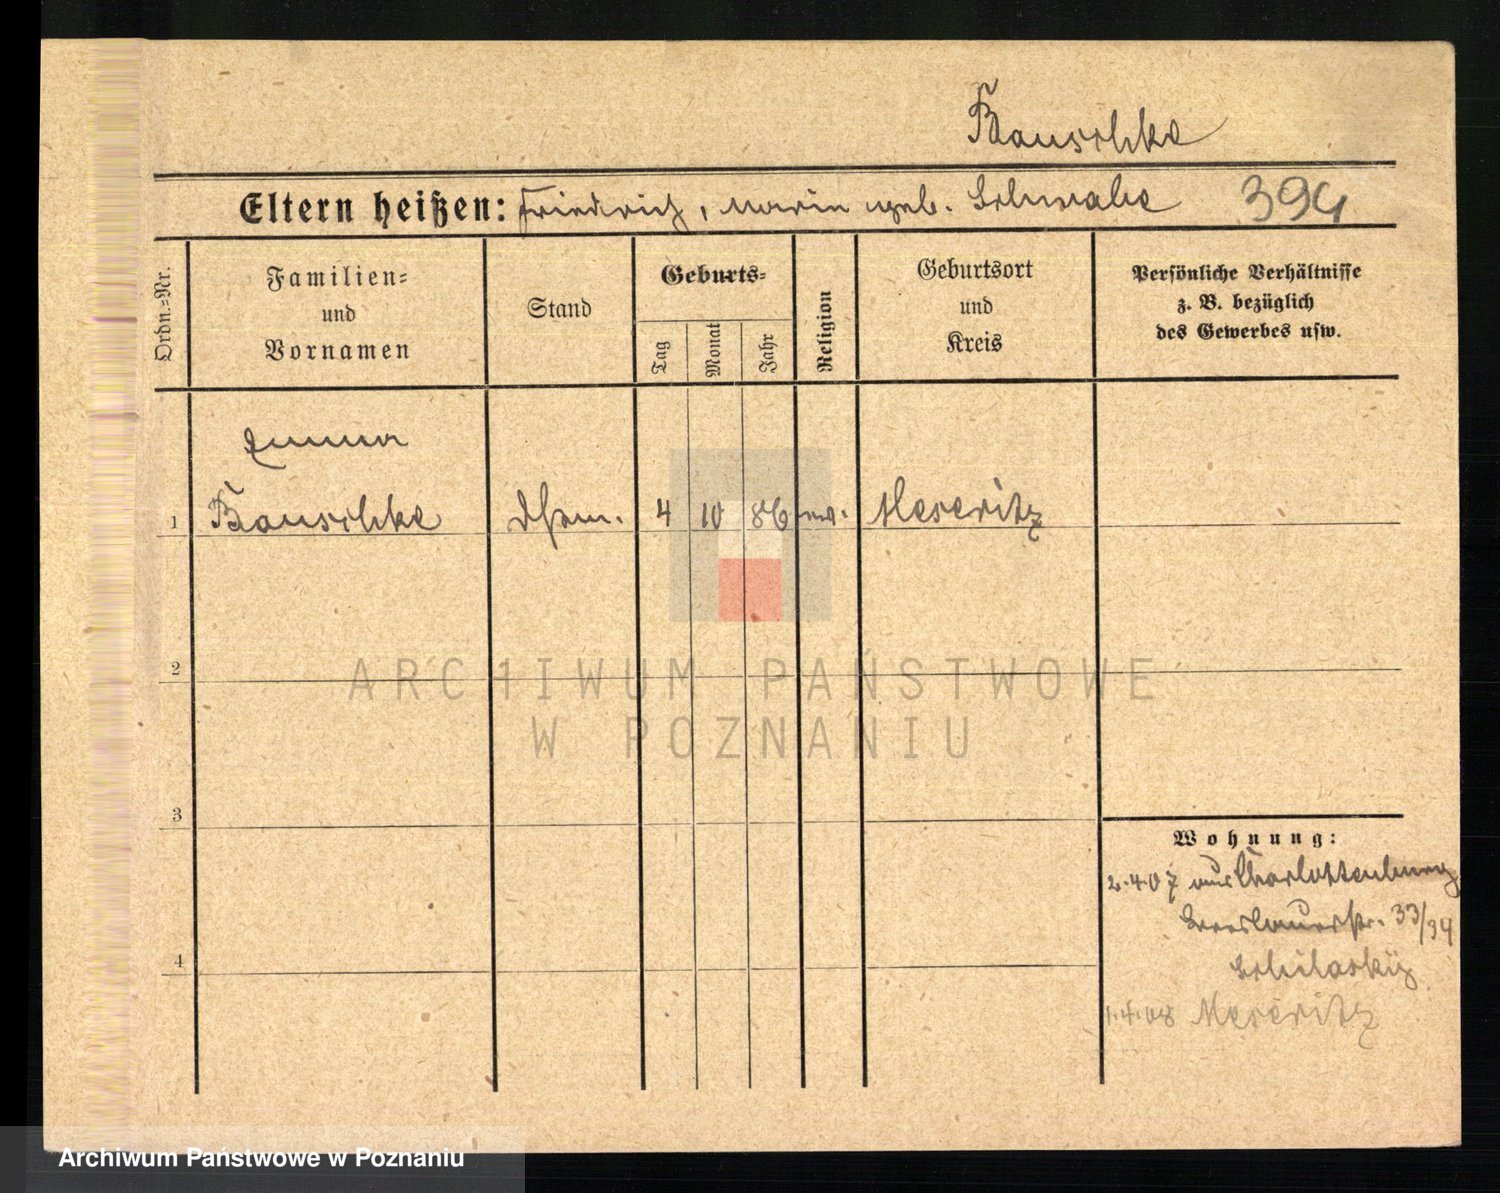 Bauschke
Eltern heißen: Friedrich, Marie geb. Schwabe 394
Ordn.=Nr.
Familien=
und
Vornamen
Stand
Geburts=
Tag
Monat
Jahr
Religion
Geburtsort
und
Kreis
Persönliche Verhältnisse
z. B. bezüglich
des Gewerbes usw.
Emma
1 Bauschke 4 10 86 ev. Meseritz
2
3
4
Wohnung:
2.4.07 aus Charlottenburg
Breslauerstr. 33/34
1.4.08 Meseritz
ARCHIWUM PAŃSTWOWE
W POZNANIU
Archiwum Państwowe w Poznaniu